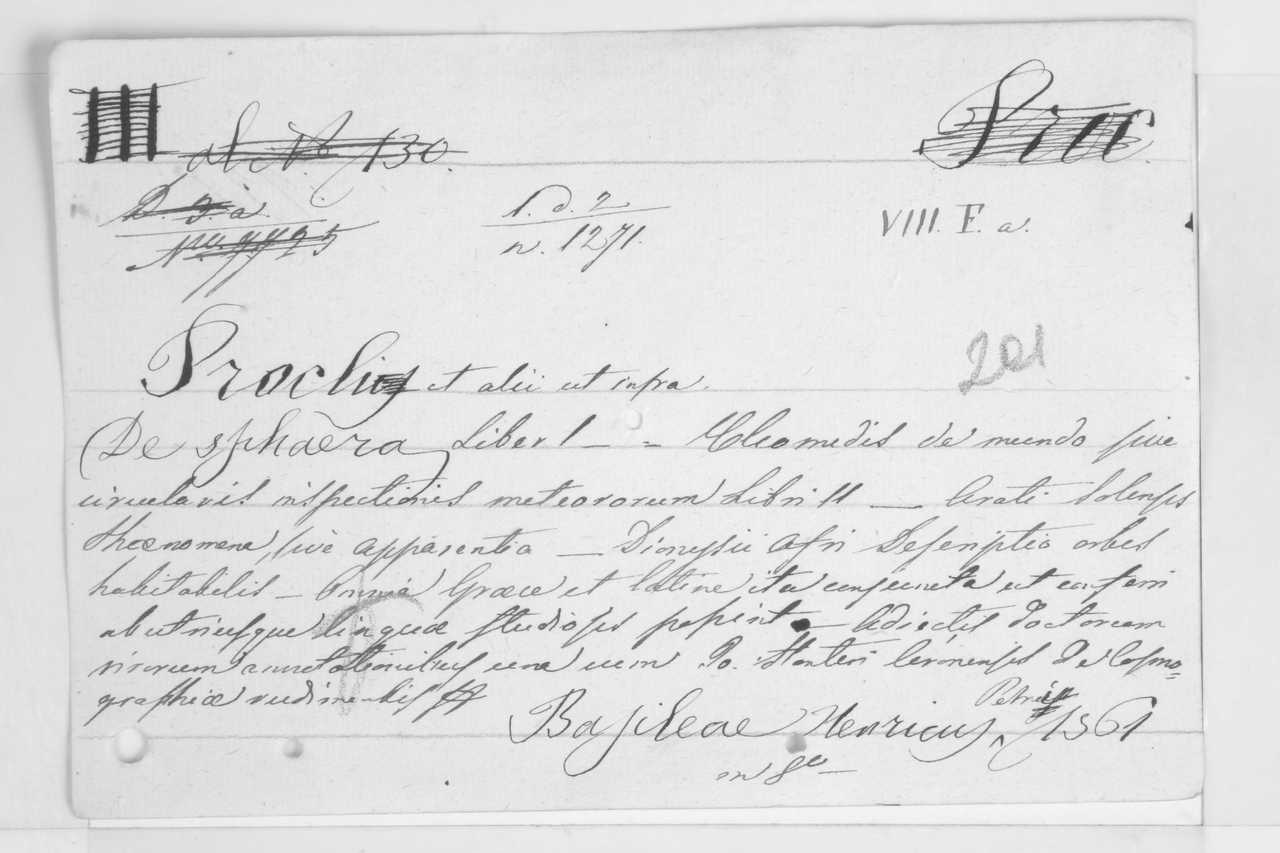 al No 130.
Proc.
D. g. a.
No. 9925
1. d. 2
n. 1271.
VIII. F. a.
201
Proclus et alii ut infra.
De sphaera Liber 1 _ = Cleomedis de mundo sive
circularis inspectionis meteororum Libri II _ Arati Solensis
Phaenomena, sive apparentia _ Dionysii Afri Descriptio orbis
habitabilis _ Omnia Graece et latine ita conjuncta ut conferri
ab utriusque linguae studiosis possint _ Adiectis Doctorum
virorum annotationibus una cum Jo. Honteri Coronensis De Cosmo=
graphiae rudimentis
Basileae Henricus Petri 1561
in 8o _